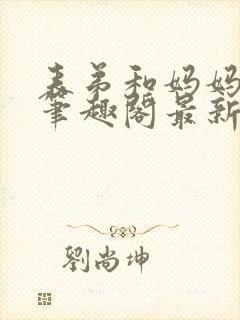 表弟和妈妈
笔趣阁最新
劉尚坤